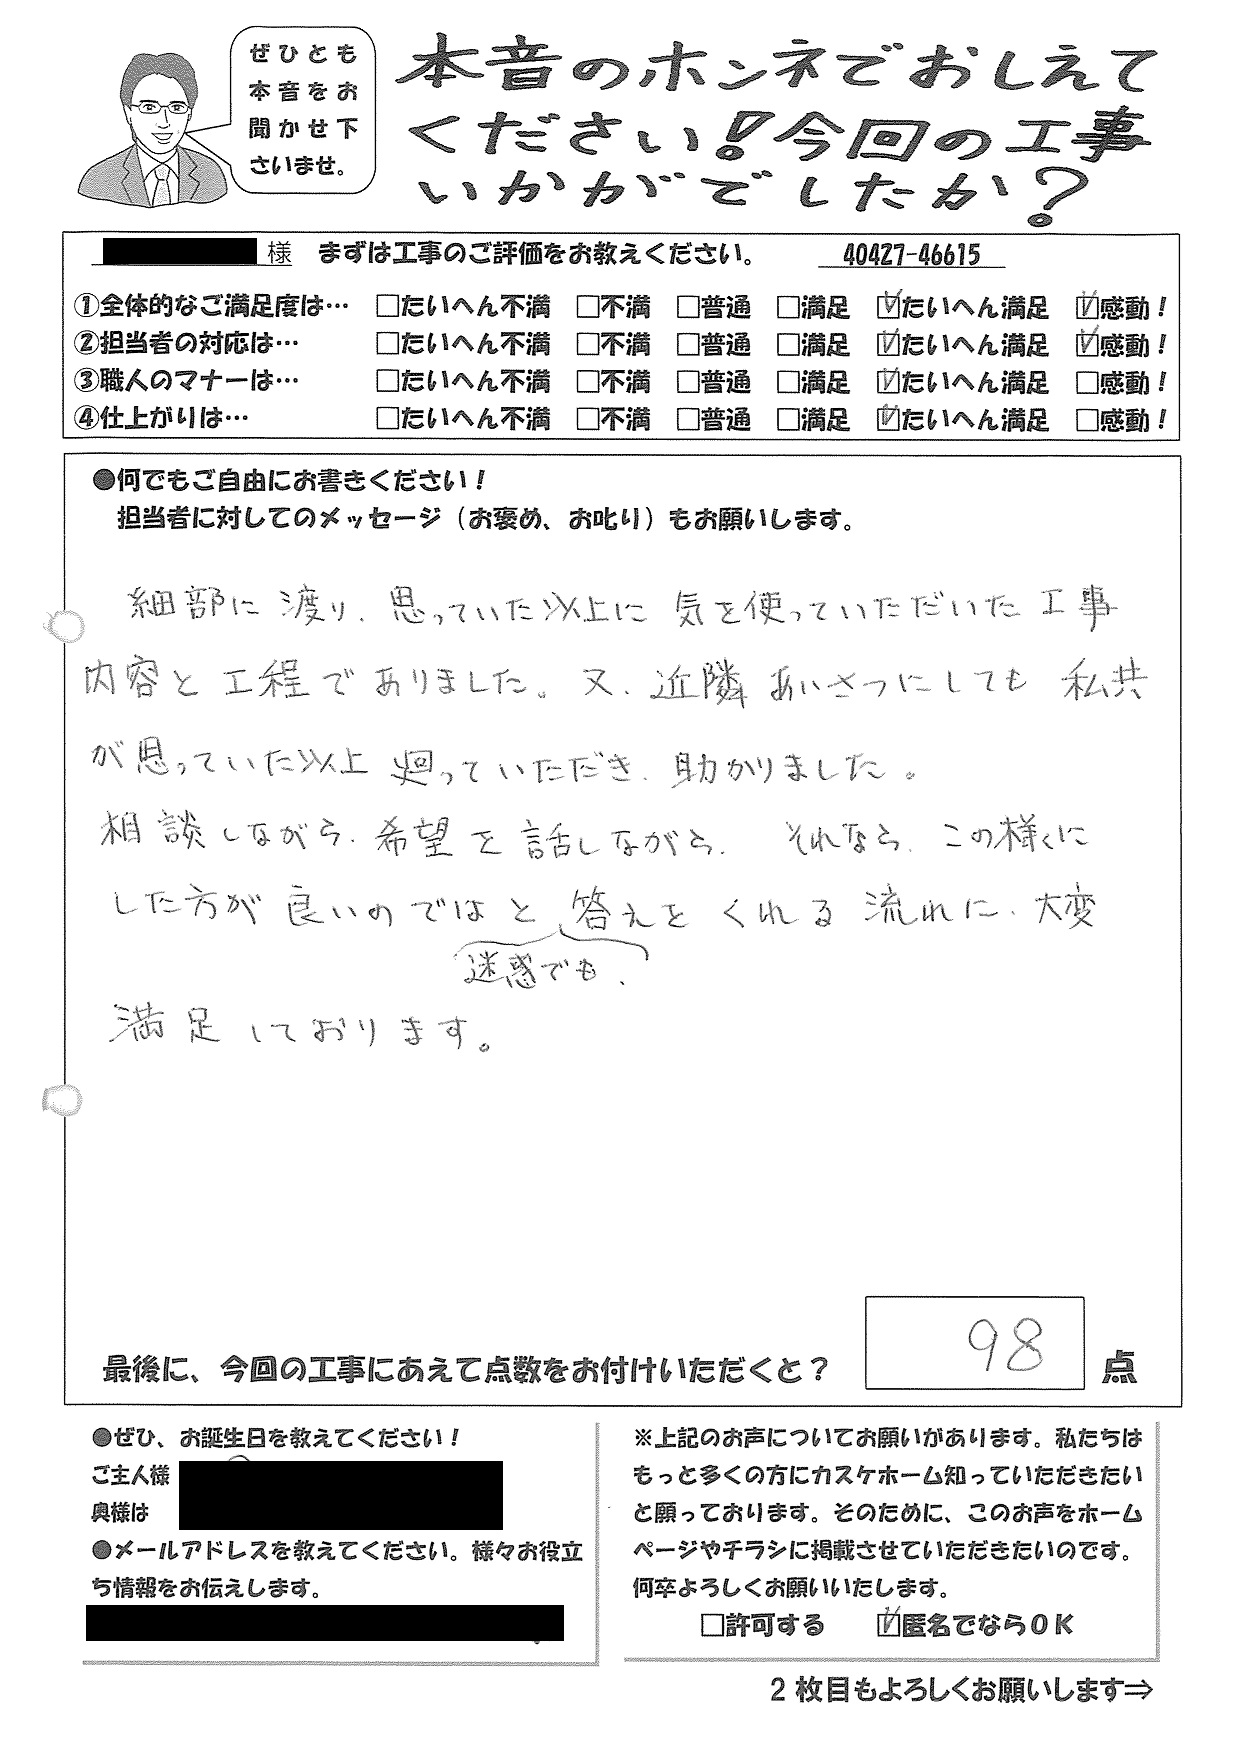 ぜひとも
本音をお
聞かせ下
さいませ。
本音のホンネでおしえて
ください!今回の工事
いかがでしたか?
様 まずは工事のご評価をお教えください。 40427-46615
①全体的なご満足度は… □たいへん不満 □不満 □普通 □満足 ☑たいへん満足 ☑感動!
②担当者の対応は… □たいへん不満 □不満 □普通 □満足 ☑たいへん満足 ☑感動!
③職人のマナーは… □たいへん不満 □不満 □普通 □満足 ☑たいへん満足 □感動!
④仕上がりは… □たいへん不満 □不満 □普通 □満足 ☑たいへん満足 □感動!
●何でもご自由にお書きください!
担当者に対してのメッセージ(お褒め、お叱り)もお願いします。
細部に渡り、思っていた以上に気を使っていただいた工事
内容と工程でありました。又、近隣あいさつにしても私共
が思っていた以上廻っていただき、助かりました。
相談しながら、希望を話しながら、それなら、この様に
した方が良いのではと答えをくれる流れに、大変
迷惑でも、
満足しております。
最後に、今回の工事にあえて点数をお付けいただくと? 98 点
●ぜひ、お誕生日を教えてください!
ご主人様
奥様は
●メールアドレスを教えてください。様々お役立
ち情報をお伝えします。
※上記のお声についてお願いがあります。私たちは
もっと多くの方にカスケホーム知っていただきたい
と願っております。そのために、このお声をホーム
ページやチラシに掲載させていただきたいのです。
何卒よろしくお願いいたします。
□許可する ☑匿名でならOK
2枚目もよろしくお願いします⇒